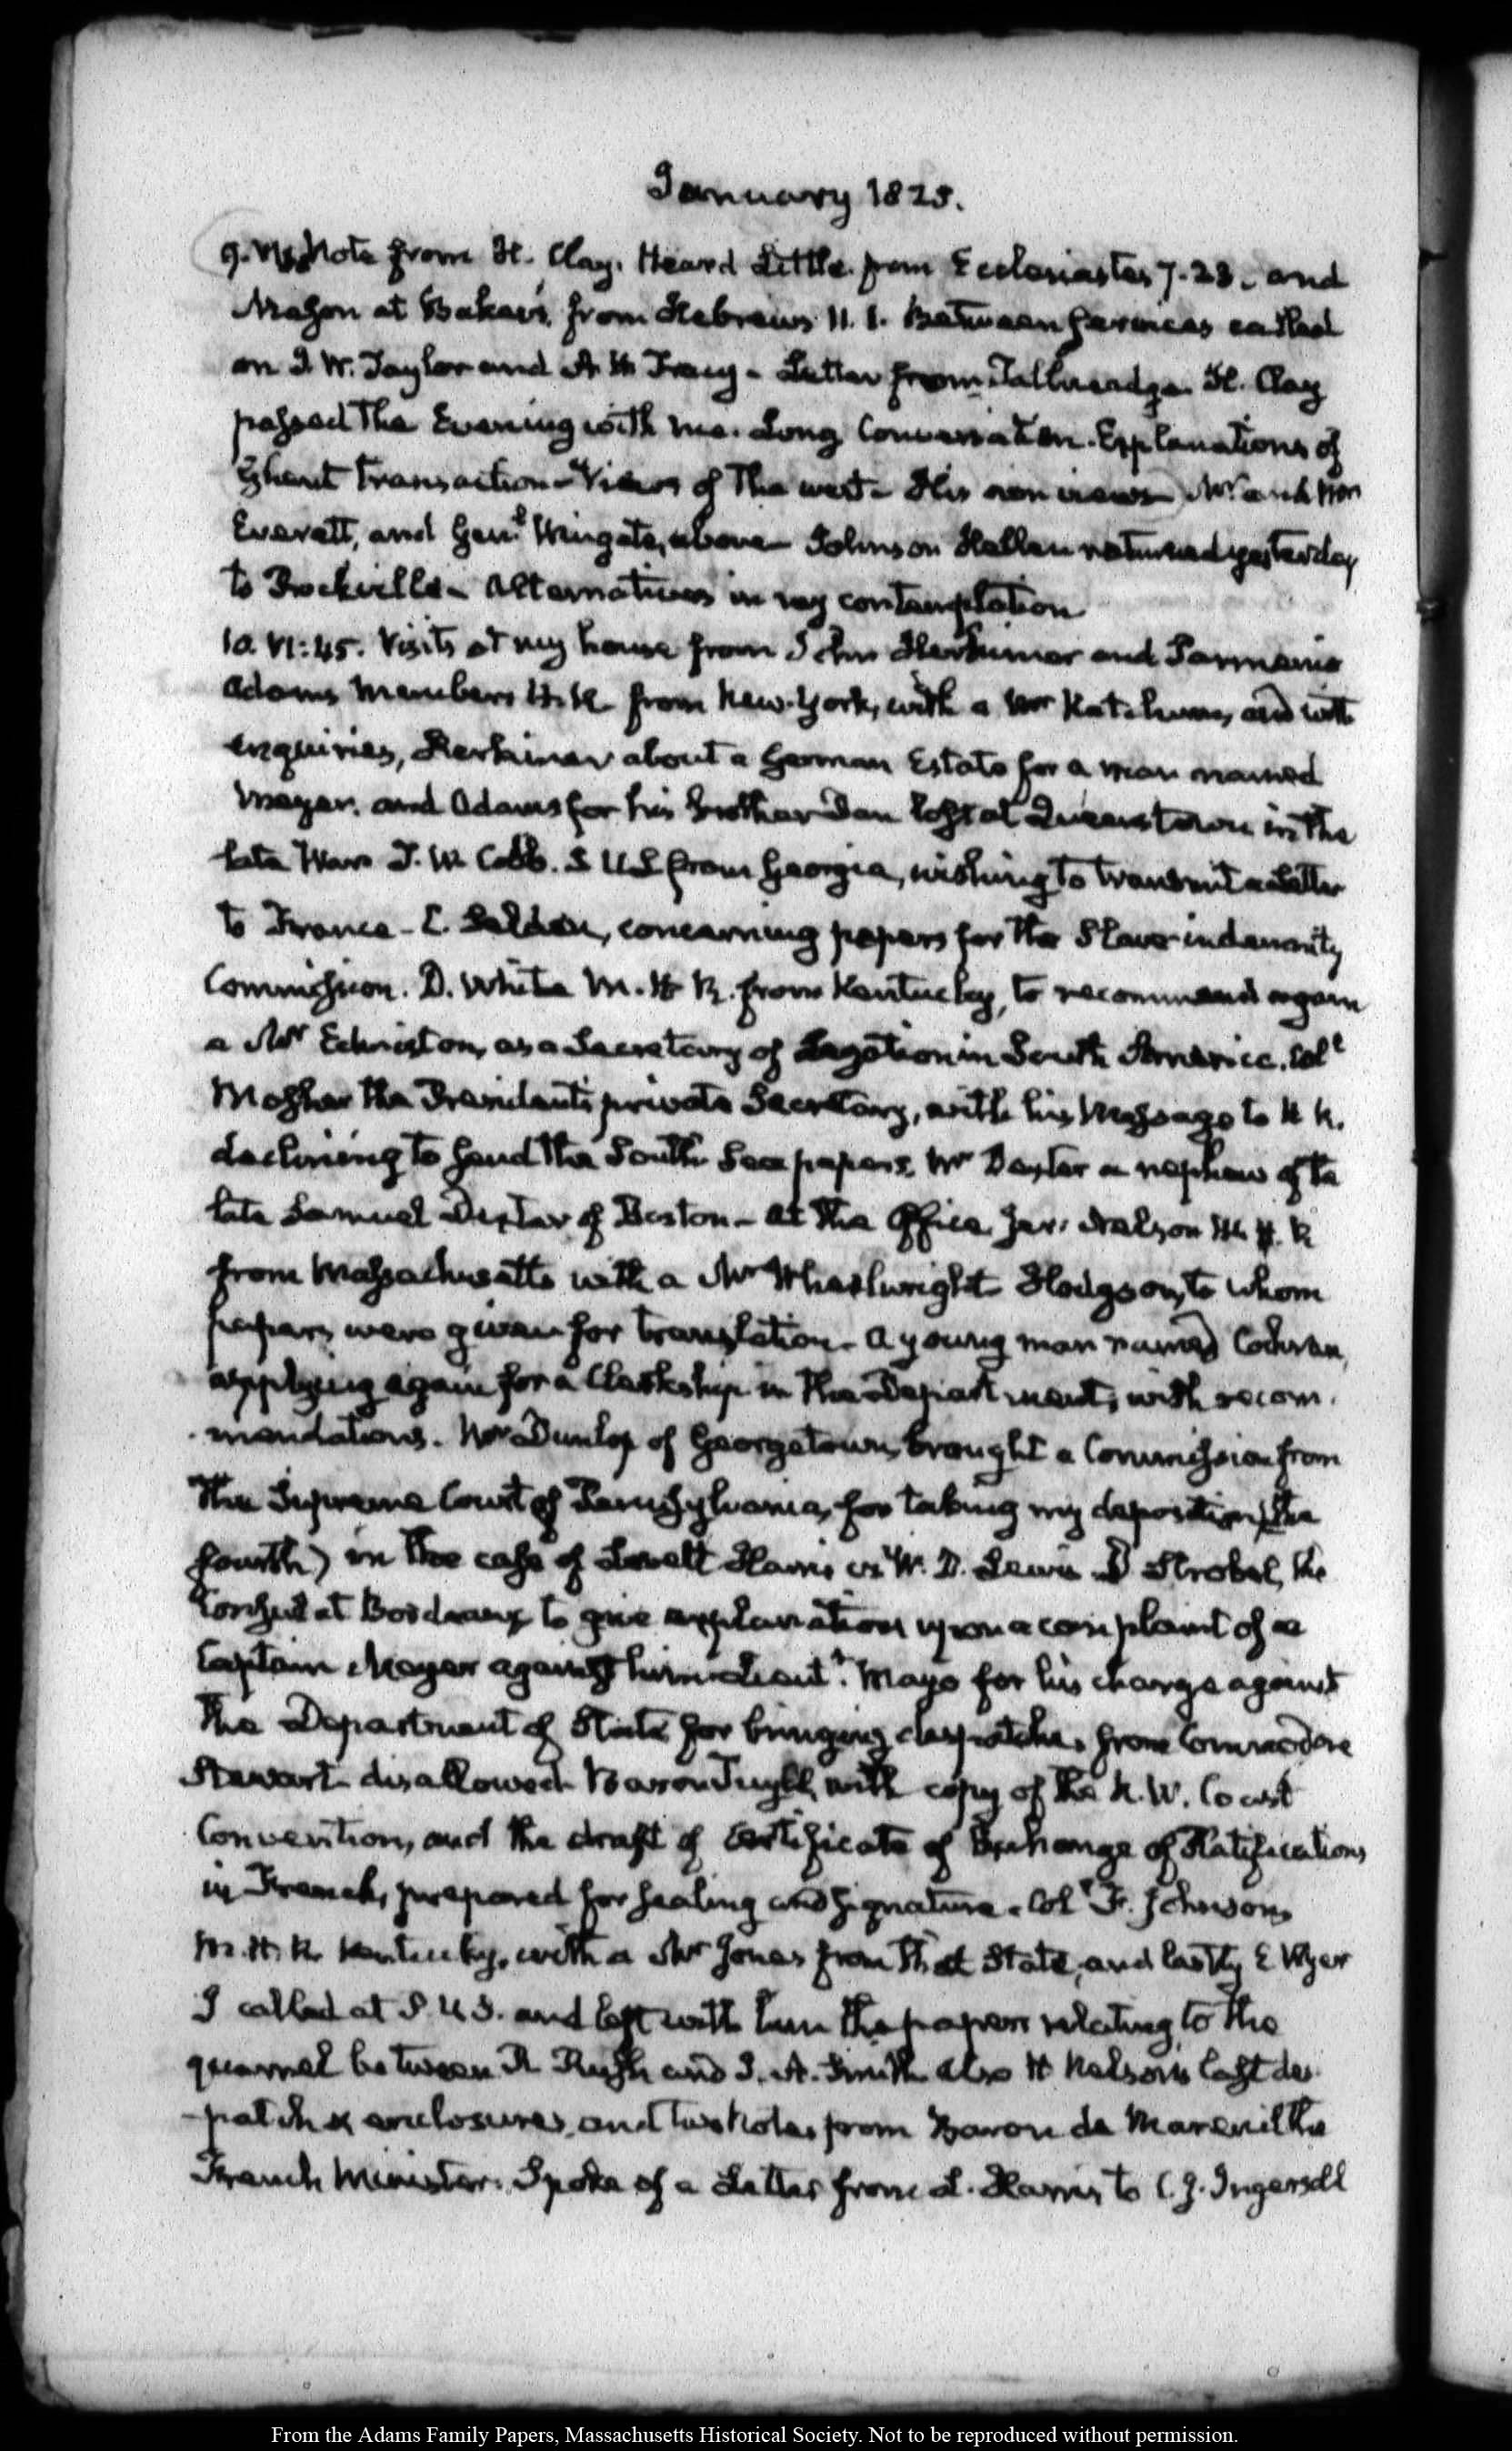 January 1825.
9. VI. Note from H. Clay. Heard Little from Ecclesiastes 7. 23. and
Mason at Baker's, from Hebrews 11. 1. Between services called
on J. W. Taylor and A. H. Tracy - Letter from Tallmadge. H. Clay
passed the Evening with me. Long Conversation. Explanations of
Ghent transaction - Views of the west - His own views - Mr and Mrs
Everett, and Genl Wingate, above - Johnson Hellen returned yesterday
to Rockville - Alternatives in my contemplation
10. VI:45. Visits at my house from John Herkimer and Parmenio
Adams Members H.R. from New-York, with a Mr Ketchum, and with
enquiries, Herkimer about a German Estate for a man named
Meyer, and Adams for his brother Dan lost at Queenstown in the
late War. T. W. Cobb. S US from Georgia, wishing to transmit a Letter
to France - C. Selden, concerning papers for the Slave indemnity
Commission. D. White M. H R. from Kentucky, to recommend again
a Mr as a Secretary of Legation in South America. Coll
Mosher the President's private Secretary, with his Message to H R.
declining to send the South Sea papers. Mr Dexter a nephew of the
late Samuel Dexter of Boston - At the Office Jer: Nelson M. H. R
from Massachusetts with a Mr Wheelwright - Hodgson, to whom
papers were given for translation - A young man named Cochran,
applying again for a Clerkship in the Department, with recom-
-mendations. Mr Dunlop of Georgetown, brought a Commission from
the Supreme Court of Pennsylvania, for taking my deposition (the
fourth) in the case of Levett Harris vs W. D. Lewis. D Strobel, the
Consul at Bordeaux to give explanations upon a complaint of a
Captain Meyer against him - Lieutt. Mayo for his charge against
the Department of State for bringing despatches from Commodore
Stewart - disallowed - Baron Tuyll, with copy of the N. W. Coast
Convention, and the draft of Certificate of Exchange of Ratifications
in French, prepared for sealing and signature. Coll F. Johnson,
M. H. R. Kentucky, with a Mr Jones from that State, and lastly E Wyer
I called at P. U.S. and left with him the papers relating to the
quarrel between R Rush and J. A. Smith also H Nelson's last des-
-patch & enclosures, and two Notes from Baron de Mareuil the
French Minister. Spoke of a Letter from L. Harris to C. J. Ingersoll
From the Adams Family Papers, Massachusetts Historical Society. Not to be reproduced without permission.